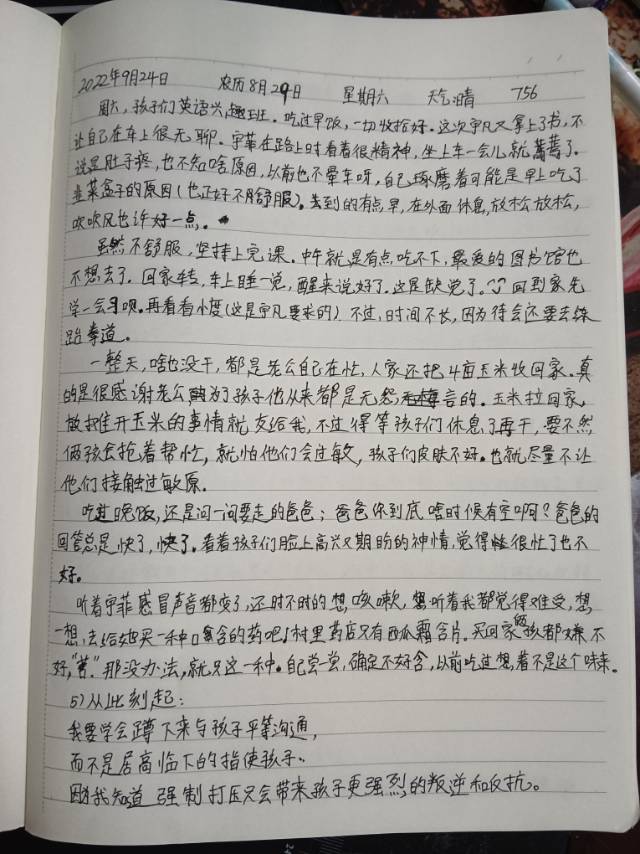 2022年9月24日 农历8月29日 星期六 天气晴 756
周六,孩子们英语兴趣班。吃过早饭,一切收拾好。这次宇凡又拿上了书,不
让自己在车上很无聊。宇菲在路上时看着很精神,坐上车一会儿就蔫蔫了。
说是肚子疼,也不知啥原因,以前也不晕车呀,自己琢磨着可能是早上吃了
韭菜盒子的原因(也正好不用舒服)。去到的有点早,在外面休息,放松放松,
吹吹风也许好一点。
虽然不舒服,坚持上完课。中午就是有点吃不下,最爱的图书馆也
不想去了。回家转,车上睡一觉,醒来说好了。这是缺觉了。回到家先
学一会习呗。再看看小度(这是宇凡要求的)不过,时间不长,因为待会还要去练
跆拳道。
一整天,啥也没干,都是老公自己在忙,人家还把4亩玉米收回家。真
的是很感谢老公为了孩子他从来都是无怨无悔言的。玉米拉回家,
散摊开玉米的事情就交给我,不过得等孩子们休息了再干,要不然
俩孩会抢着帮忙,就怕他们会过敏,孩子们皮肤不好。也就尽量不让
他们接触过敏原。
吃过晚饭,还是问一问要走的爸爸;爸爸你到底啥时候有空啊?爸爸的
回答总是快了,快了。看着孩子们脸上高兴又期盼的神情,觉得很忙了也不
好。
听着宇菲感冒声音都变了,还时不时的想,咳嗽,听着我都觉得难受,想
一想,去给她买一种口含的药吧!村里药店只有西瓜霜含片。买回家俩孩都嫌不
好,"苦"那没办法,就只这一种。自己尝尝,确定不好含,以前吃过想着不是这个味来。
5)从此刻起:
我要学会蹲下来与孩子平等沟通,
而不是居高临下的指使孩子。
因为我知道 强制打压只会带来孩子更强烈的叛逆和反抗。